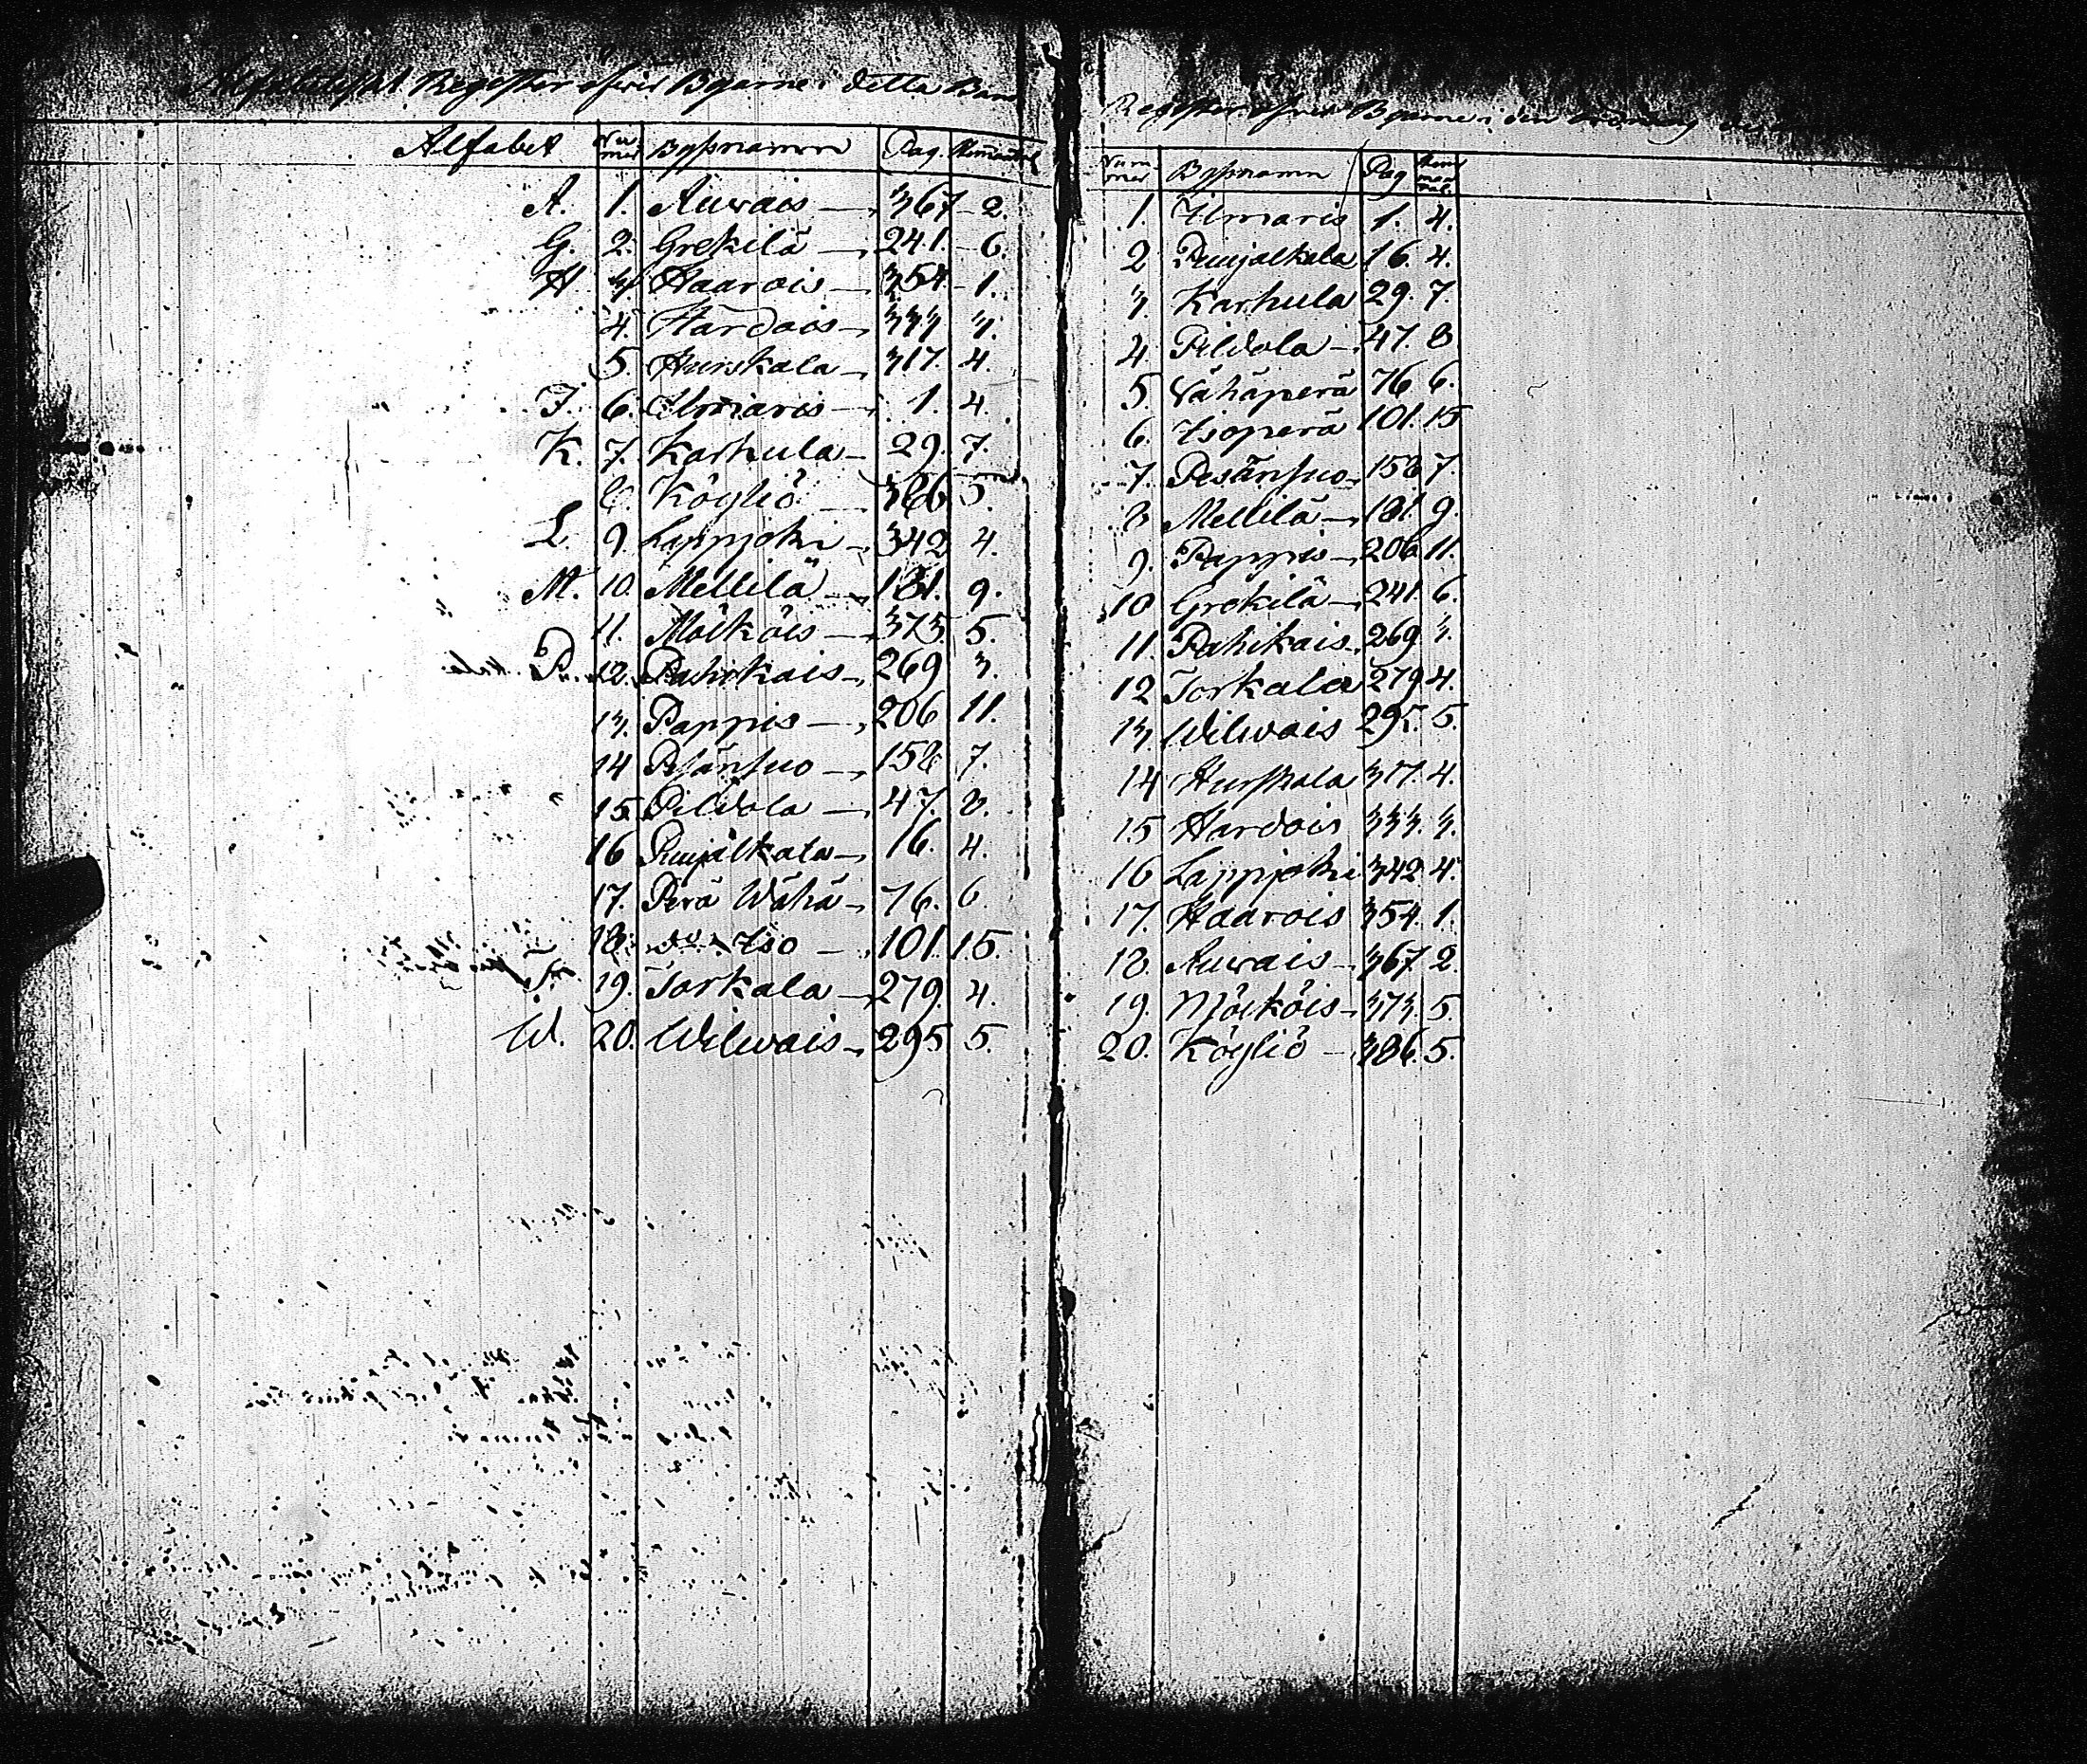 Alfabetiskt Register öfver Byarne i detta Band
Alfabet Nummer Bysnamn Pag. Hemantal
A. 1. Auvais 367 2.
G. 2. Grekilä 241. 6.
H. 3. Haarois 354 1.
4. Hardois 333 3.
5. Hurskala 317. 4.
I. 6. Ilmaris 1. 4.
K. 7. Karhula 29. 7.
8. Köyliö 386 5.
L. 9. Lappjoki 342 4.
M. 10. Mellilä 181. 9.
11. Möiköis 373. 5.
P. 12. Pahikais 269 3.
13. Pappis 206 11.
14 Pesänsuo 158 7.
15. Pildola 47. 8.
16 Puujalkala 16. 4.
17. Perä Wähä 76. 6.
18. d:o Iso 101. 15.
T. 19. Torkala 279. 4.
W. 20. Wilwais 295 5.
Register öfver Byarne i den ordning
Nummer Bysnamn Pag Hemmantal
1. Ilmaris 1. 4.
2 Puujalkala 16. 4.
3. Karhula 29. 7.
4 Pildola 47. 8
5. Vähäperä 76 6.
6. Isoperä 101. 15
7. Pesänsuo 158 7.
8 Mellilä 181. 9.
9. Pappis 206 11.
10 Grekilä 241. 6.
11. Pahikais 269 3.
12 Torkala 279 4.
13 Wilwais 295. 5.
14 Hurskala 317. 4.
15 Hardois 333. 3.
16 Lappjoki 342 4.
17. Haarois 354. 1.
18. Auvais 367. 2.
19. Möiköis 373. 5.
20. Köyliö 386. 5.